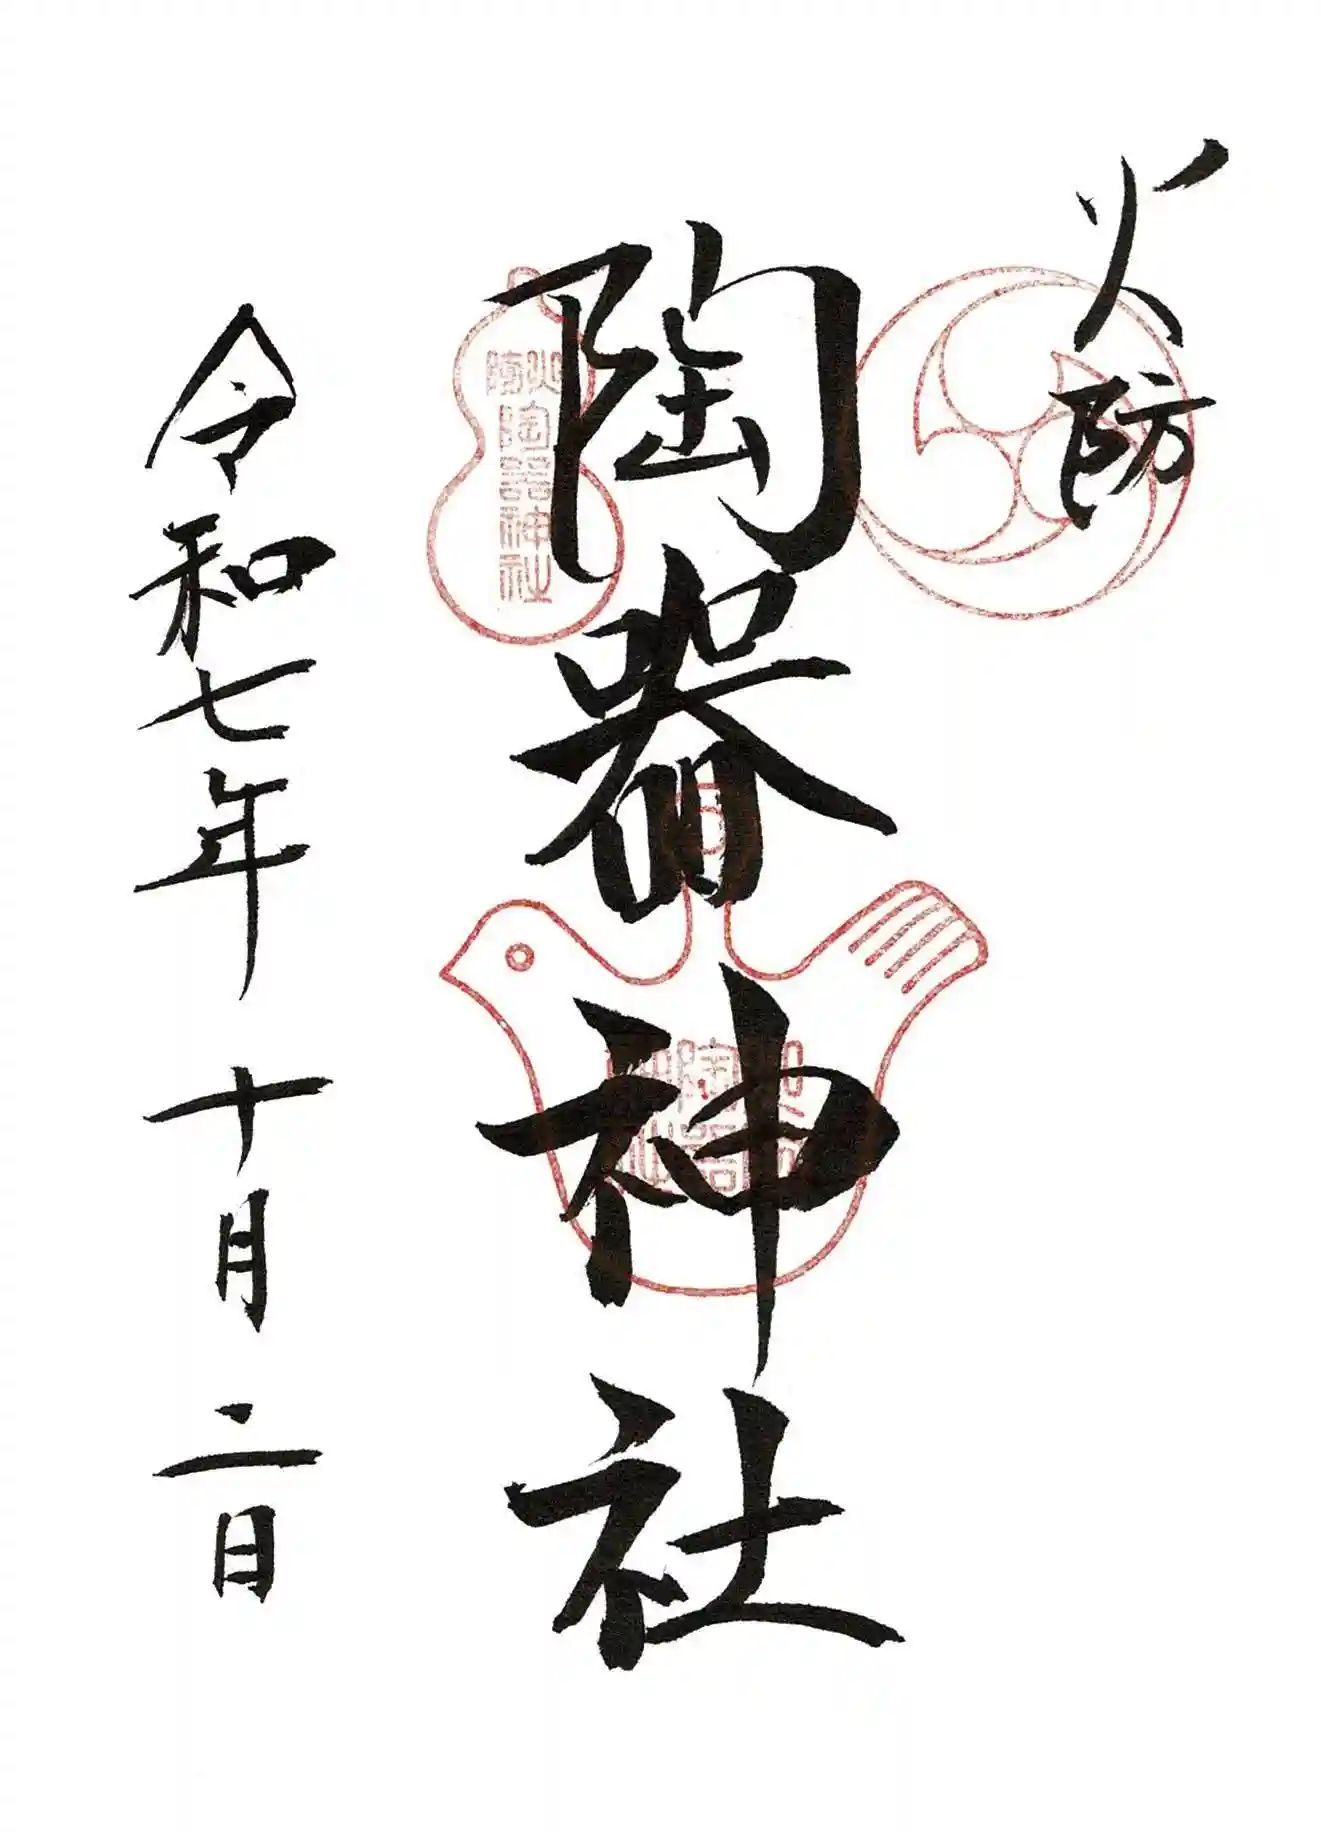 火防
陶器神社
令和七年 十月 二日
火防
陶器神社